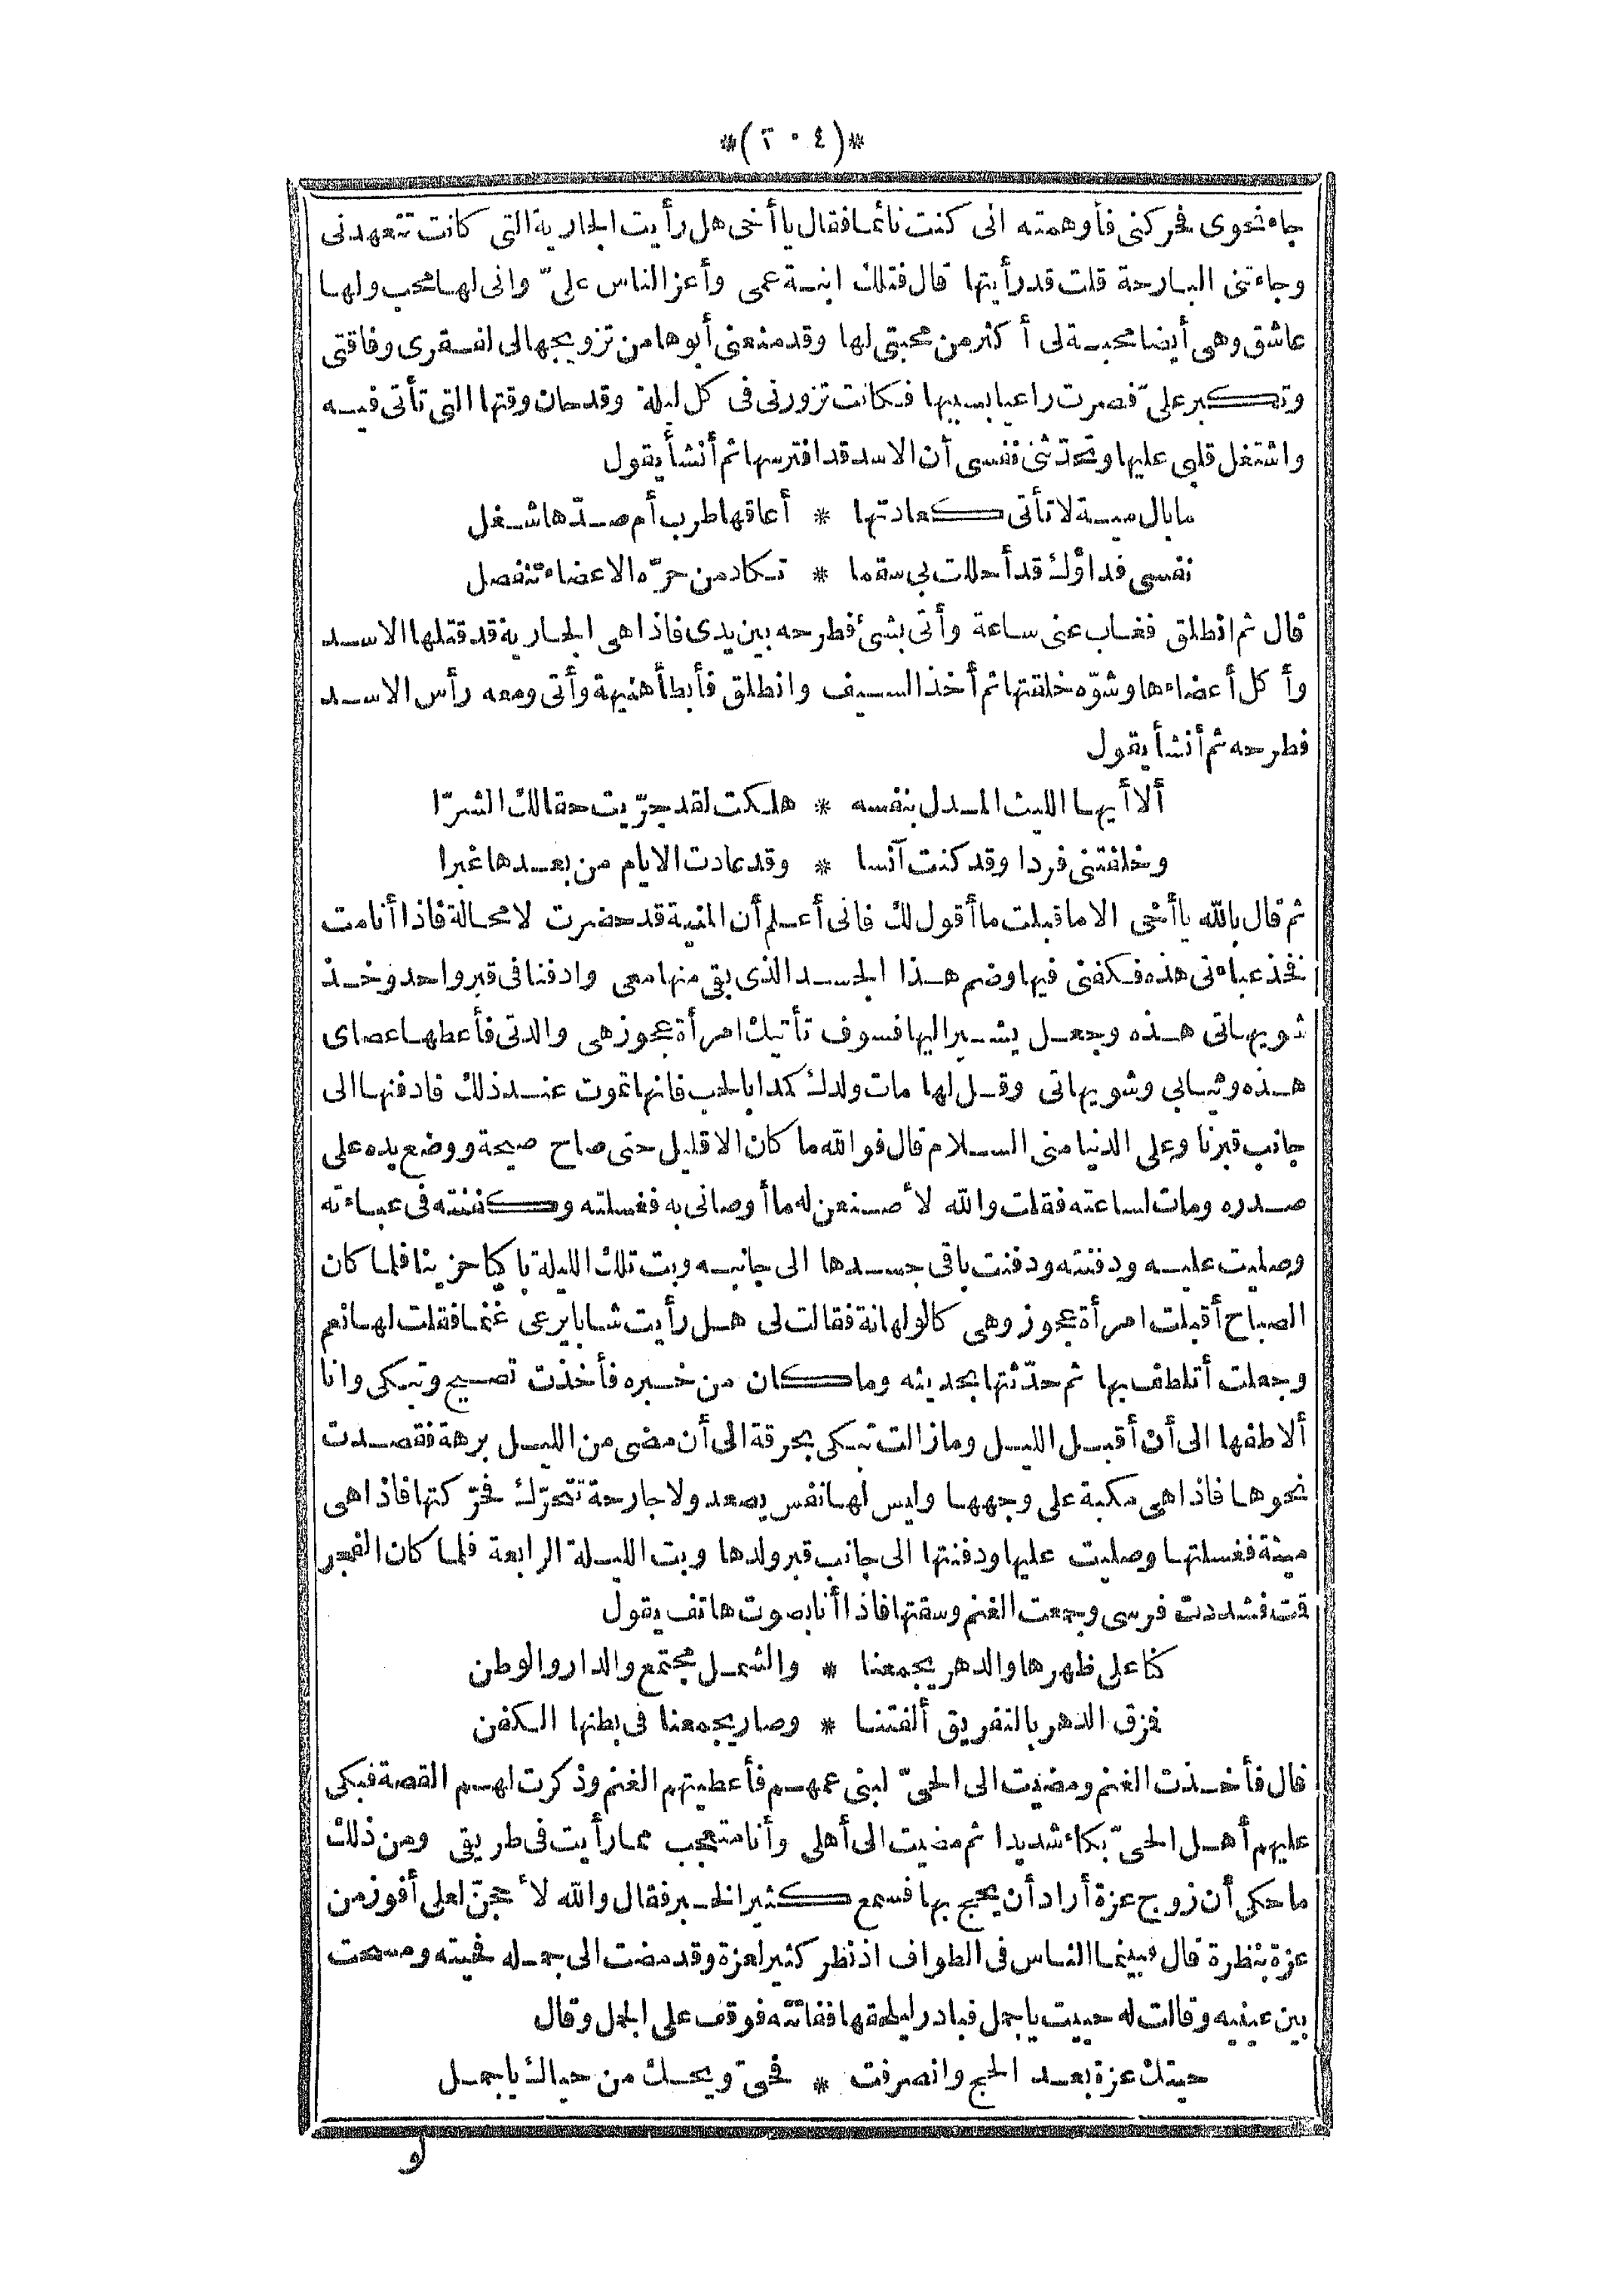 *(٢٠٤)*
جاء نحوى فحركنى فأوهمته انى كنت نائما فقال يا أخى هل رأيت الجارية التى كانت تتعهدنى
وجاءتنى البارحة قلت قد رأيتها قال فتلك ابنة عمى وأعز الناس علىّ وانى لها محب ولها
عاشق وهى أيضا محبة لى أكثر من محبتى لها وقد منعنى أبوها من تزويجها لى لفقرى وفاقتى
وتكبر علىّ فصرت راعيا بسببها فكانت تزورنى فى كل ليلة وقد حان وقتها التى تأتى فيه
واشتغل قلبى عليها وتحدّثنى نفسى أن الاسد قد افترسها ثم أنشأ يقول
ما بال مية لا تأتى كعادتها * أعاقها طرب أم صدّها شغل
نفسى فداؤك قد أحللت بى سقما * تكاد من حرّه الاعضاء تنفصل
قال ثم انطلق فغاب عنى ساعة وأتى بشئ فطرحه بين يدى فاذا هى الجارية قد قتلها الاسد
وأكل أعضاءها وشوّه خلقتها ثم أخذ السيف وانطلق فأبطأ هنيهة وأتى ومعه رأس الاسد
فطرحه ثم أنشأ يقول
ألا أيها الليث المدل بنفسه * هلكت لقد جرّيت حقا لك الشرّا
وخلفتنى فردا وقد كنت آنسا * وقد عادت الايام من بعدها غبرا
ثم قال بالله يا أخى الا ما قبلت ما أقول لك فانى أعلم أن المنية قد حضرت لا محالة فاذا أنا مت
فخذ عباءتى هذه فكفنى فيها وضم هذا الجسد الذى بقى منها معى وادفنا فى قبر واحد وخذ
شويهاتى هذه وجعل يشير اليها فسوف تأتيك امرأة عجوز هى والدتى فأعطها عصاى
هذه وثيابى وشويهاتى وقل لها مات ولدك كمدا بالحب فانها تموت عند ذلك فادفنها الى
جانب قبرنا وعلى الدنيا منى السلام قال فو الله ما كان الا قليل حتى صاح صيحة ووضع يده على
صدره ومات لساعته فقلت والله لأصنعن له ما أوصانى به فغسلته وكفنته فى عباءته
وصليت عليه ودفنته ودفنت باقى جسدها الى جانبه وبت تلك الليلة باكيا حزينا فلما كان
الصباح أقبلت امرأة عجوز وهى كالولهانة فقالت لى هل رأيت شابا يرعى غنما فقلت لها نعم
وجعلت أتلطف بها ثم حدّثتها بحديثه وما كان من خبره فأخذت تصيح وتبكى وانا
ألاطفها الى أن أقبل الليل وما زالت تبكى بحرقة الى أن مضى من الليل برهة فقصدت
نحوها فاذا هى مكبة على وجهها وليس لها نفس يصعد ولا جارحة تتحرّك فحرّكتها فاذا هى
ميتة فغسلتها وصليت عليها ودفنتها الى جانب قبر ولدها وبت الليلة الرابعة فلما كان الفجر
قمت فشددت فرسى وجمعت الغنم وسقتها فاذا أنا بصوت هاتف يقول
كنا على ظهرها والدهر يجمعنا * والشمل مجتمع والدار والوطن
فزق الدهر بالتفريق ألفتنا * وصار يجمعنا فى بطنها الكفن
قال فأخذت الغنم ومضيت الى الحىّ لبنى عمهم فأعطيتهم الغنم وذكرت لهم القصة فبكى
عليهم أهل الحىّ بكاء شديدا ثم مضيت الى أهلى وأنا متعجب مما رأيت فى طريقى ومن ذلك
ما حكى أن زوج عزة أراد أن يحج بها فسمع كثير الخبر فقال والله لأحجنّ لعلى أفوز من
عزة بنظرة قال فبينما الناس فى الطواف اذ نظر كثير لعزة وقد مضت الى جمله فحيته ومسحت
بين عينيه وقالت له حييت يا جمل فبادر ليلحقها ففاتته فوقف على الجمل وقال
حيتك عزة بعد الحج وانصرفت * فحىّ ويحك من حياك يا جمل
لو